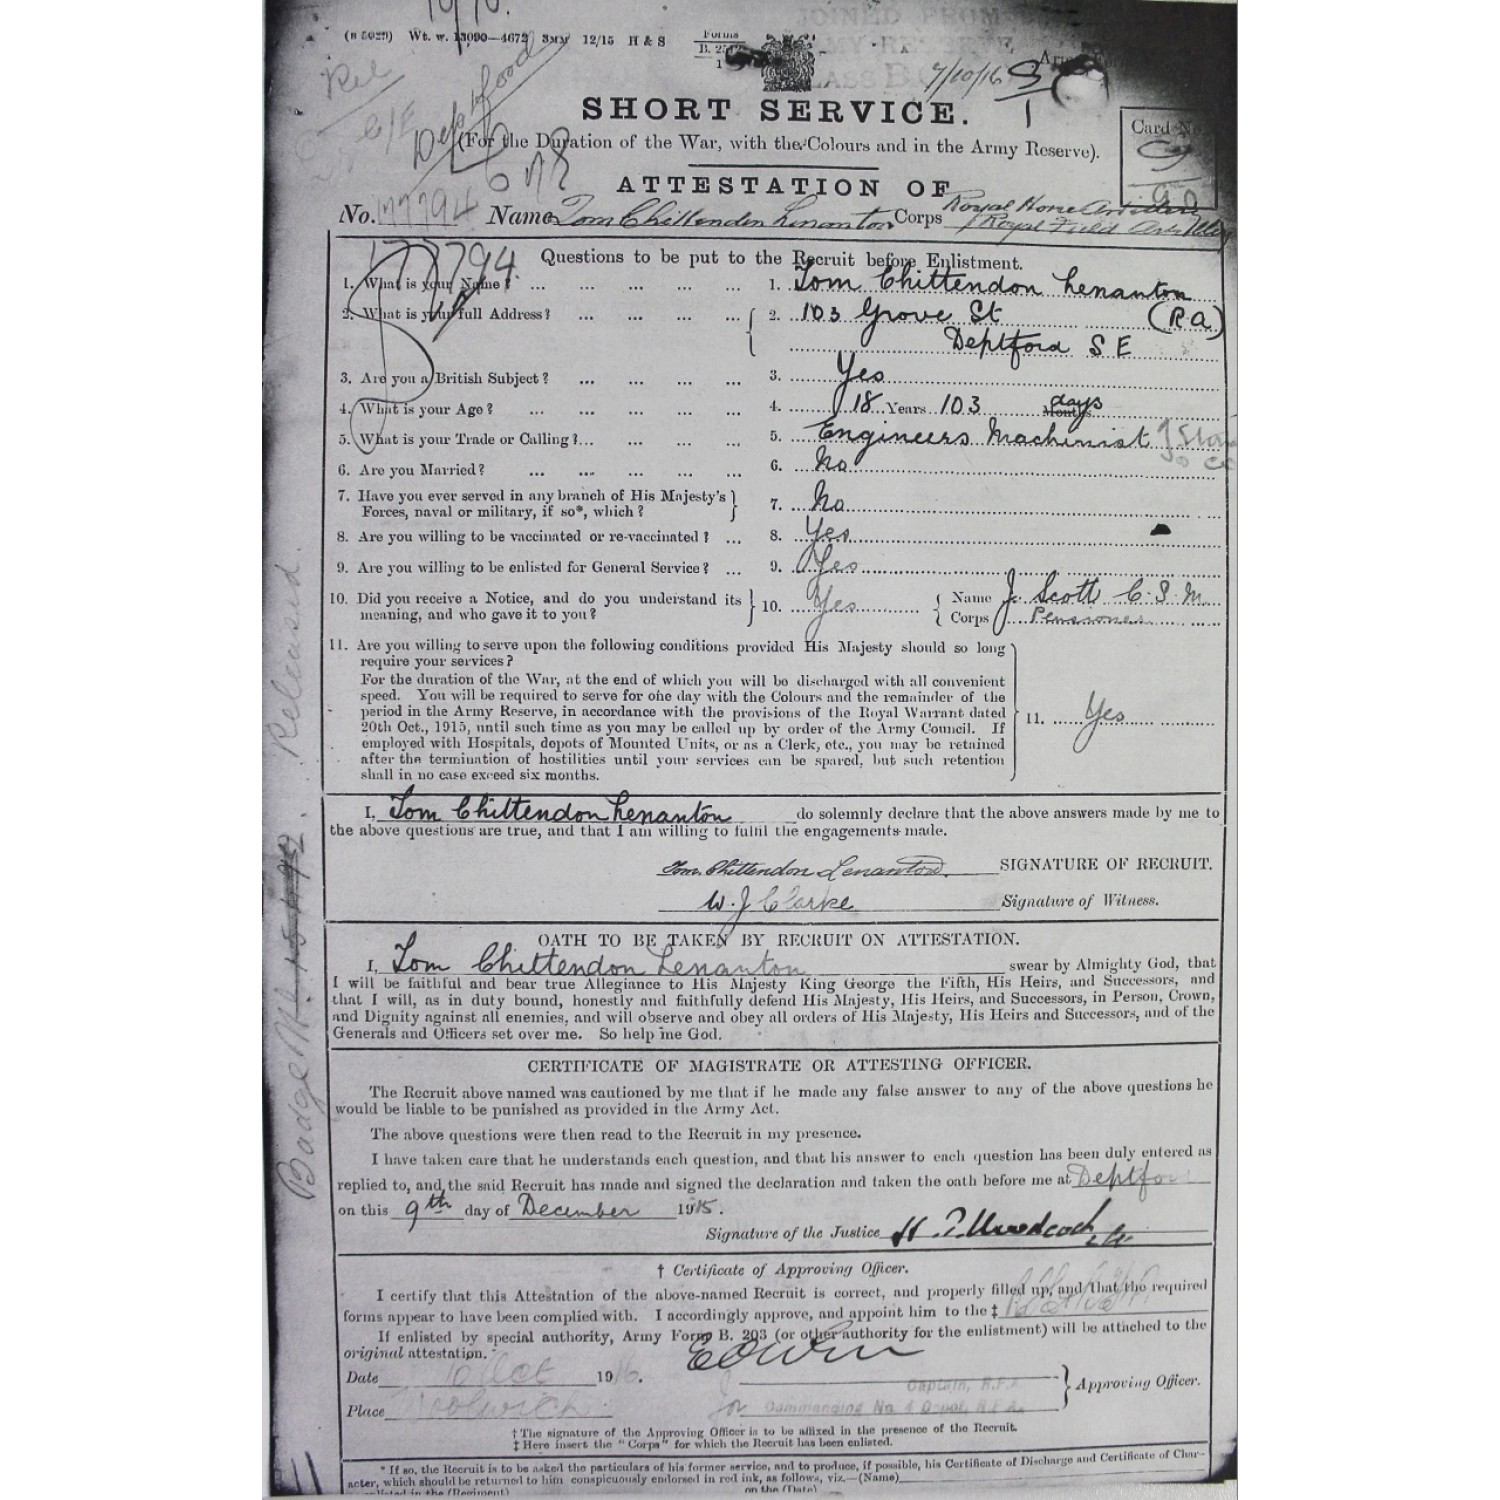 (B 5027) Wt. w. 13090—4672 3MM 12/15 H & S
Forms
B. 2512
1
JOINED FROM
CLASS B
7/10/16
Army
SHORT SERVICE.
Card No.
(For the Duration of the War, with the Colours and in the Army Reserve).
Deptford
ATTESTATION OF
No. 177794 Name Tom Chittendon Lenanton Corps Royal Horse Artillery
Royal Field Artillery
177794.
Questions to be put to the Recruit before Enlistment.
1. What is your Name? ... ... ... ... ... 1. Tom Chittendon Lenanton
2. What is your full Address? ... ... ... ... 2. 103 Grove St (R.A)
Deptford S E
3. Are you a British Subject? ... ... ... ... 3. Yes
4. What is your Age? ... ... ... ... ... 4. 18 Years 103 days Months
5. What is your Trade or Calling?... ... ... ... 5. Engineers Machinist
6. Are you Married? ... ... ... ... ... 6. No
7. Have you ever served in any branch of His Majesty's
Forces, naval or military, if so*, which? 7. No
8. Are you willing to be vaccinated or re-vaccinated? ... 8. Yes
9. Are you willing to be enlisted for General Service? ... 9. Yes
10. Did you receive a Notice, and do you understand its
meaning, and who gave it to you? 10. Yes Name J. Scott C.S.M
Corps Pensioner
11. Are you willing to serve upon the following conditions provided His Majesty should so long
require your services?
For the duration of the War, at the end of which you will be discharged with all convenient
speed. You will be required to serve for one day with the Colours and the remainder of the
period in the Army Reserve, in accordance with the provisions of the Royal Warrant dated
20th Oct., 1915, until such time as you may be called up by order of the Army Council. If
employed with Hospitals, depots of Mounted Units, or as a Clerk, etc., you may be retained
after the termination of hostilities until your services can be spared, but such retention
shall in no case exceed six months.
11. Yes
I, Tom Chittendon Lenanton do solemnly declare that the above answers made by me to
the above questions are true, and that I am willing to fulfil the engagements made.
Tom Chittendon Lenanton SIGNATURE OF RECRUIT.
W. J Clarke Signature of Witness.
OATH TO BE TAKEN BY RECRUIT ON ATTESTATION.
I, Tom Chittendon Lenanton swear by Almighty God, that
I will be faithful and bear true Allegiance to His Majesty King George the Fifth, His Heirs, and Successors, and
that I will, as in duty bound, honestly and faithfully defend His Majesty, His Heirs, and Successors, in Person, Crown,
and Dignity against all enemies, and will observe and obey all orders of His Majesty, His Heirs and Successors, and of the
Generals and Officers set over me. So help me God.
CERTIFICATE OF MAGISTRATE OR ATTESTING OFFICER.
The Recruit above named was cautioned by me that if he made any false answer to any of the above questions he
would be liable to be punished as provided in the Army Act.
The above questions were then read to the Recruit in my presence.
I have taken care that he understands each question, and that his answer to each question has been duly entered as
replied to, and the said Recruit has made and signed the declaration and taken the oath before me at Deptford
on this 9th day of December 1915.
Signature of the Justice
† Certificate of Approving Officer.
I certify that this Attestation of the above-named Recruit is correct, and properly filled up, and that the required
forms appear to have been complied with. I accordingly approve, and appoint him to the ‡
If enlisted by special authority, Army Form B. 203 (or other authority for the enlistment) will be attached to the
original attestation.
Date 10 Oct 1916.
Captain, R.F.A.
Approving Officer.
Place Woolwich
for Commanding No. 4 Depot, R.F.A.
† The signature of the Approving Officer is to be affixed in the presence of the Recruit.
‡ Here insert the "Corps" for which the Recruit has been enlisted.
* If so, the Recruit is to be asked the particulars of his former service, and to produce, if possible, his Certificate of Discharge and Certificate of Char-
acter, which should be returned to him conspicuously endorsed in red ink, as follows, viz.—(Name)
enlisted in the (Regiment) on the (Date)
Released.
Badge No.